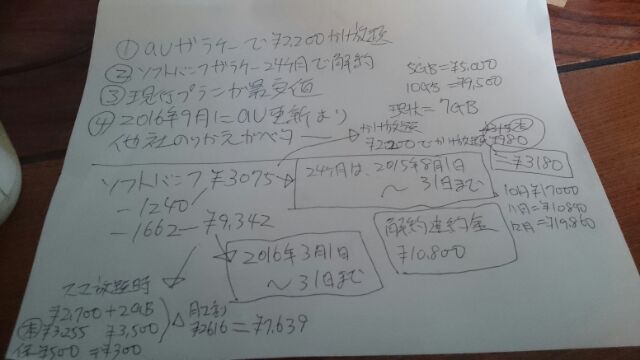 ① auガラケーで¥2,200かけ放題
② ソフトバンクガラケー24ヶ月で解約
③ 現行プランが最安値
④ 2016年9月にau更新より
他社のりかえがベター
5GB=¥5,000
10GB=¥9,500
現状=7GB
かけ放題
¥2200でかけ放題
¥980
=¥3180
ソフトバンク ¥3075
-1240
-1662 ¥9,342
24ヶ月は、2015年8月1日
~31日まで
2016年3月1日
~31日まで
解約違約金
¥10,800
10月¥17000
11月=¥10840
12月=¥19,860
スマ放題時
¥2,700+2GB
¥3,255 ¥3,500
保¥500 =¥300
月々割
¥2616=¥7,639